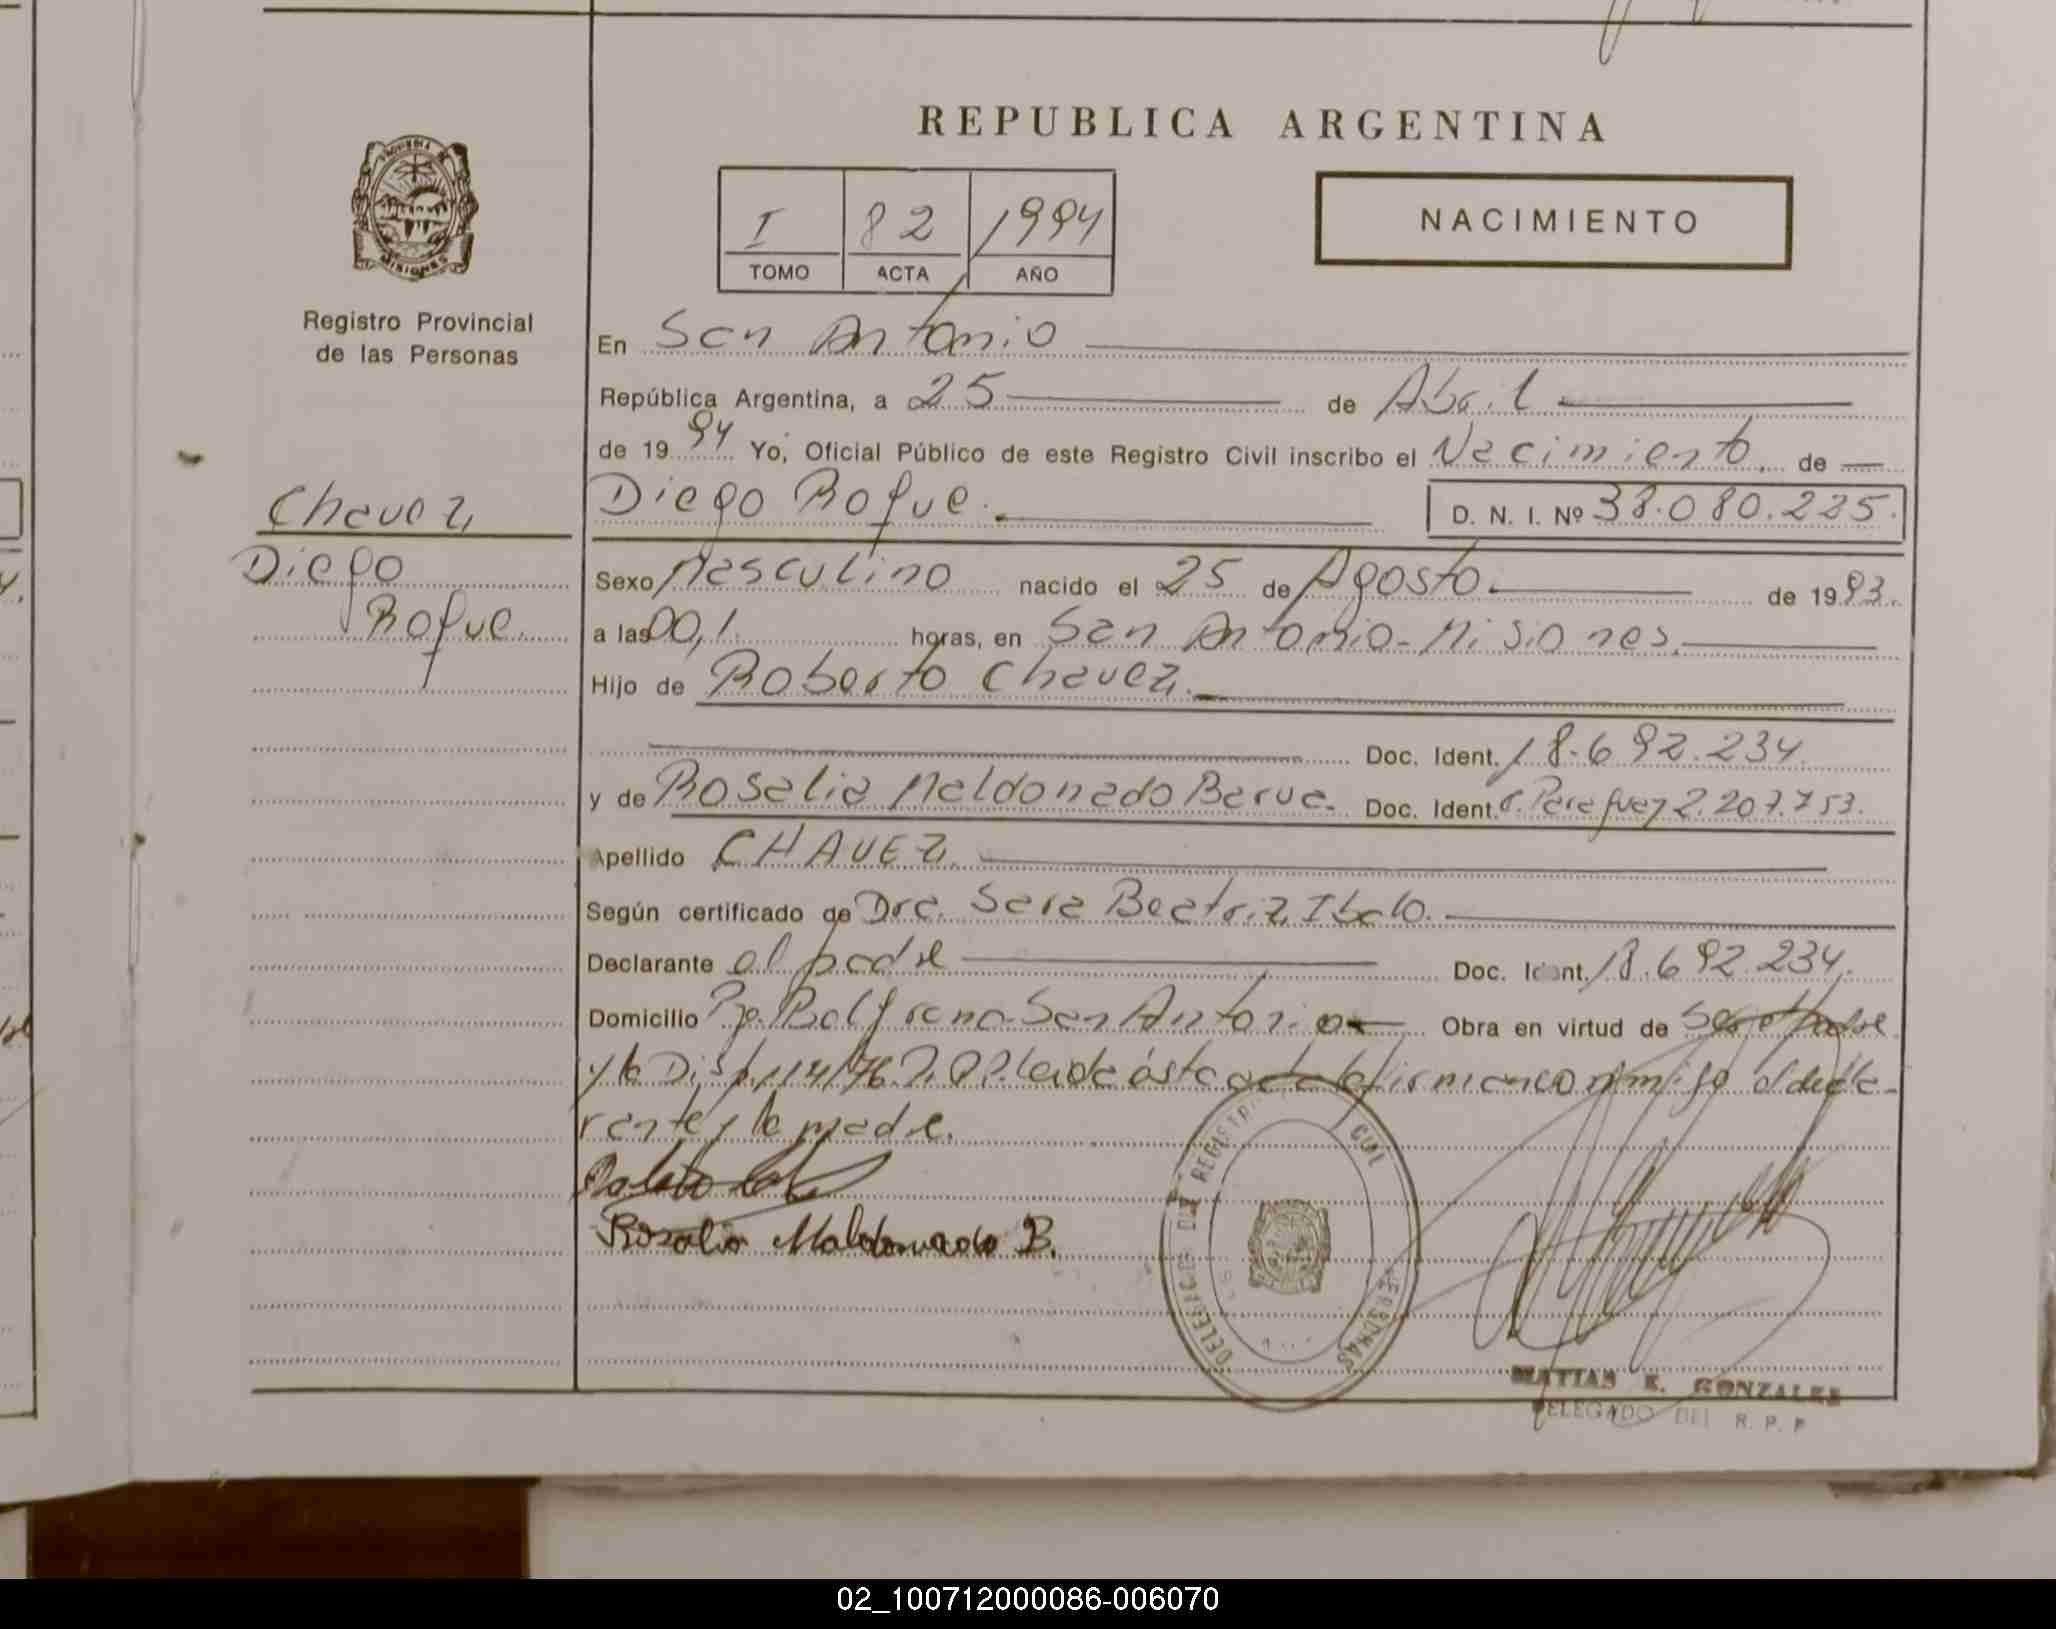 REPUBLICA ARGENTINA
I 82 1994
TOMO ACTA AÑO
NACIMIENTO
PROVINCIA DE
MISIONES
Registro Provincial
de las Personas
Chavez
Diego
Roque
En San Antonio
República Argentina, a 25 de Abril
de 1994 Yo, Oficial Público de este Registro Civil inscribo el Nacimiento de
Diego Roque. D. N. I. Nº 38.080.225.
Sexo Masculino nacido el 25 de Agosto de 1993.
a las 00,1 horas, en San Antonio-Misiones.
Hijo de Roberto Chavez.
Doc. Ident. 18.692.234.
y de Rosalia Maldonado Barua. Doc. Ident. C. Paraguay 2.207.753.
Apellido CHAVEZ
Según certificado de Dra. Sara Beatriz Ibalo.
Declarante el padre Doc. Ident. 18.692.234.
Domicilio San Antonio Obra en virtud de Ser el Padre
y la Disp. 114/76 Leida ésta acta la firman conmigo el decla-
rante y la madre.
Rosalia Maldonado B.
REGISTRO CIVIL
PERSONAS
MATIAS E. GONZALES
DELEGADO DEL R. P. P
02_100712000086-006070